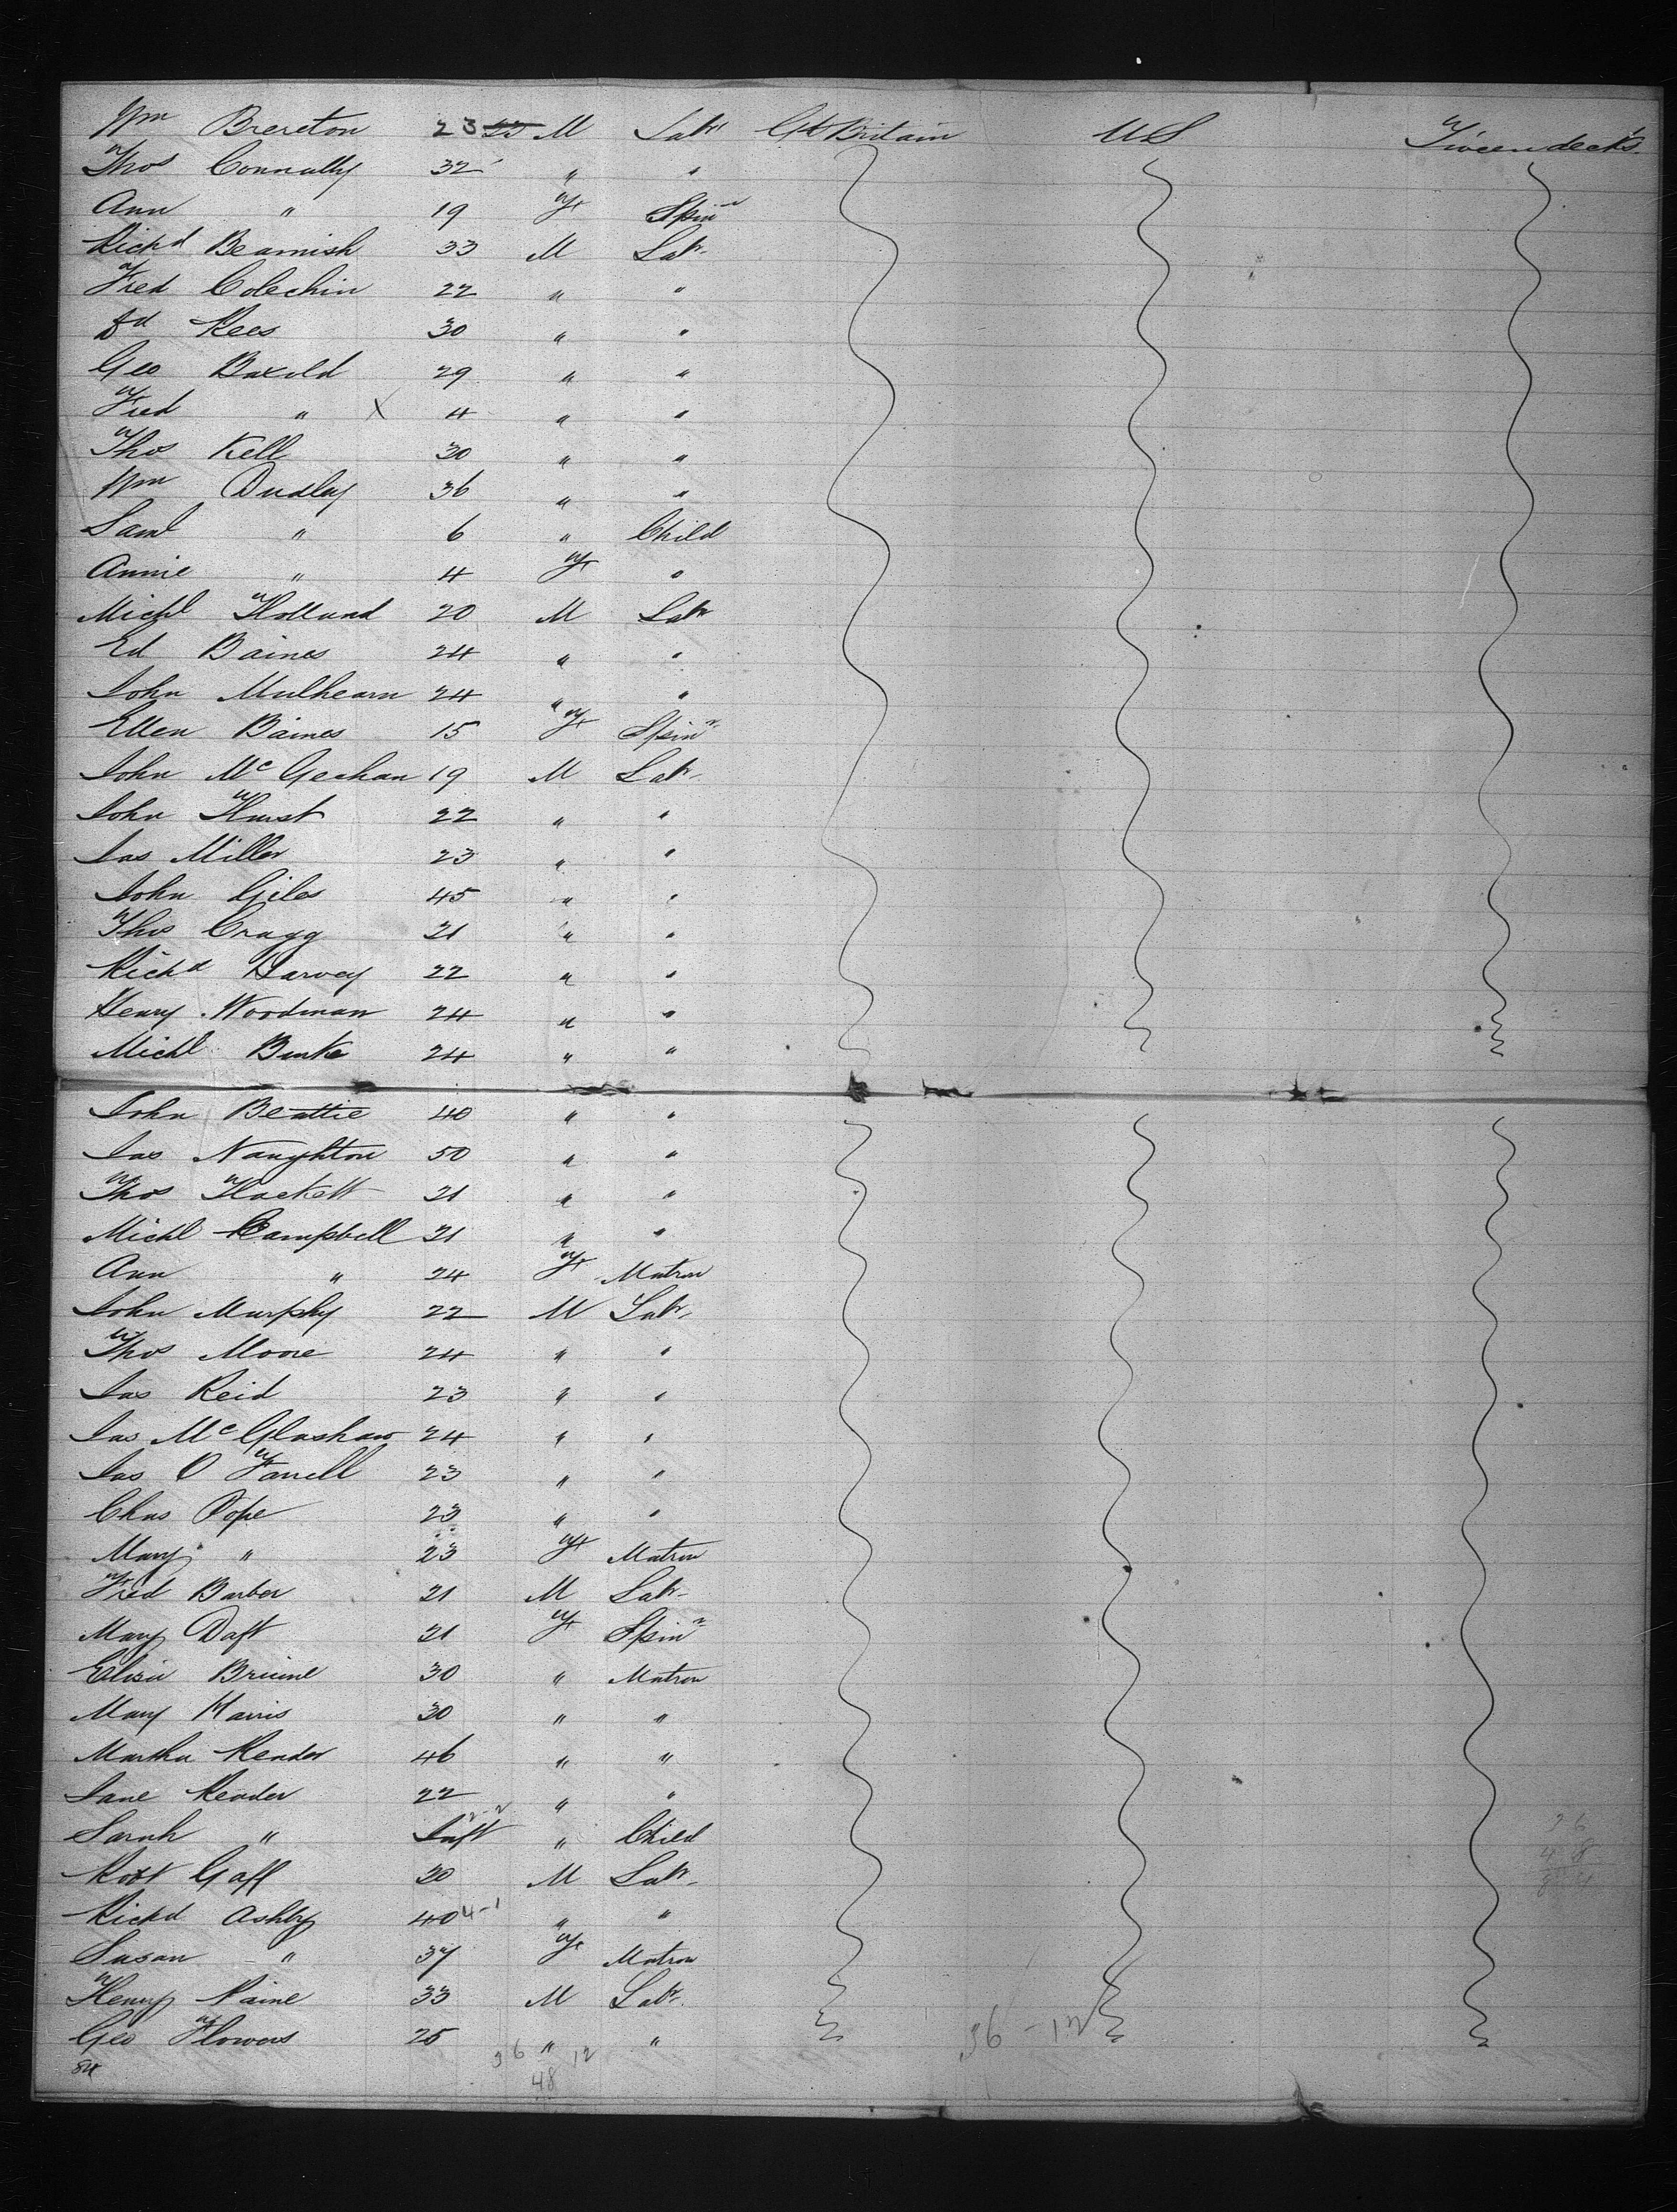 Wm Brereton 23 M Labr Gt Britain U S Tweendecks
Thos Connally 32 " "
Ann " 19 F Spinr
Richd Beamish 33 M Labr
Fred Colechin 22 " "
Ed Rees 30 " "
Geo 29 " "
Fred " X 4 " "
Thos Kell 30 " "
Wm Dudley 36 " "
Saml " 6 " Child
Annie " 4 F "
Michl Holland 20 M Labr
Ed Baines 24 " "
John Mulhearn 24 " "
Ellen Baines 15 F Spinr
John McGeehan 19 M Labr
John Hurst 22 " "
Jas Miller 23 " "
John Giles 45 " "
Thos Cragg 21 " "
Richd Harvey 22 " "
Henry Woodman 24 " "
Michl Burke 24 " "
John Beattie 40 " "
Jas Naughton 50 " "
Thos Hackett 21 " "
Michl Campbell 21 " "
Ann " 24 F Matron
John Murphy 22 M Labr
Thos Moore 24 " "
Jas Reid 23 " "
Jas McGlashaw 24 " "
Jas O Farrell 23 " "
Chas Pope 23 " "
Mary " 23 F Matron
Fred Barber 21 M Labr
Mary Daft 21 F Spinr
Eliza 30 " Matron
Mary Harris 30 " "
Martha Reader 46 " "
Jane Reader 22 " "
Sarah " Inft " Child
Robt Gaff 20 M Labr
Richd Ashby 40 4-1 " "
Susan " 37 F Matron
Henry Raine 33 M Labr
Geo Flowers 25 " "
84 36 12 36-12
48